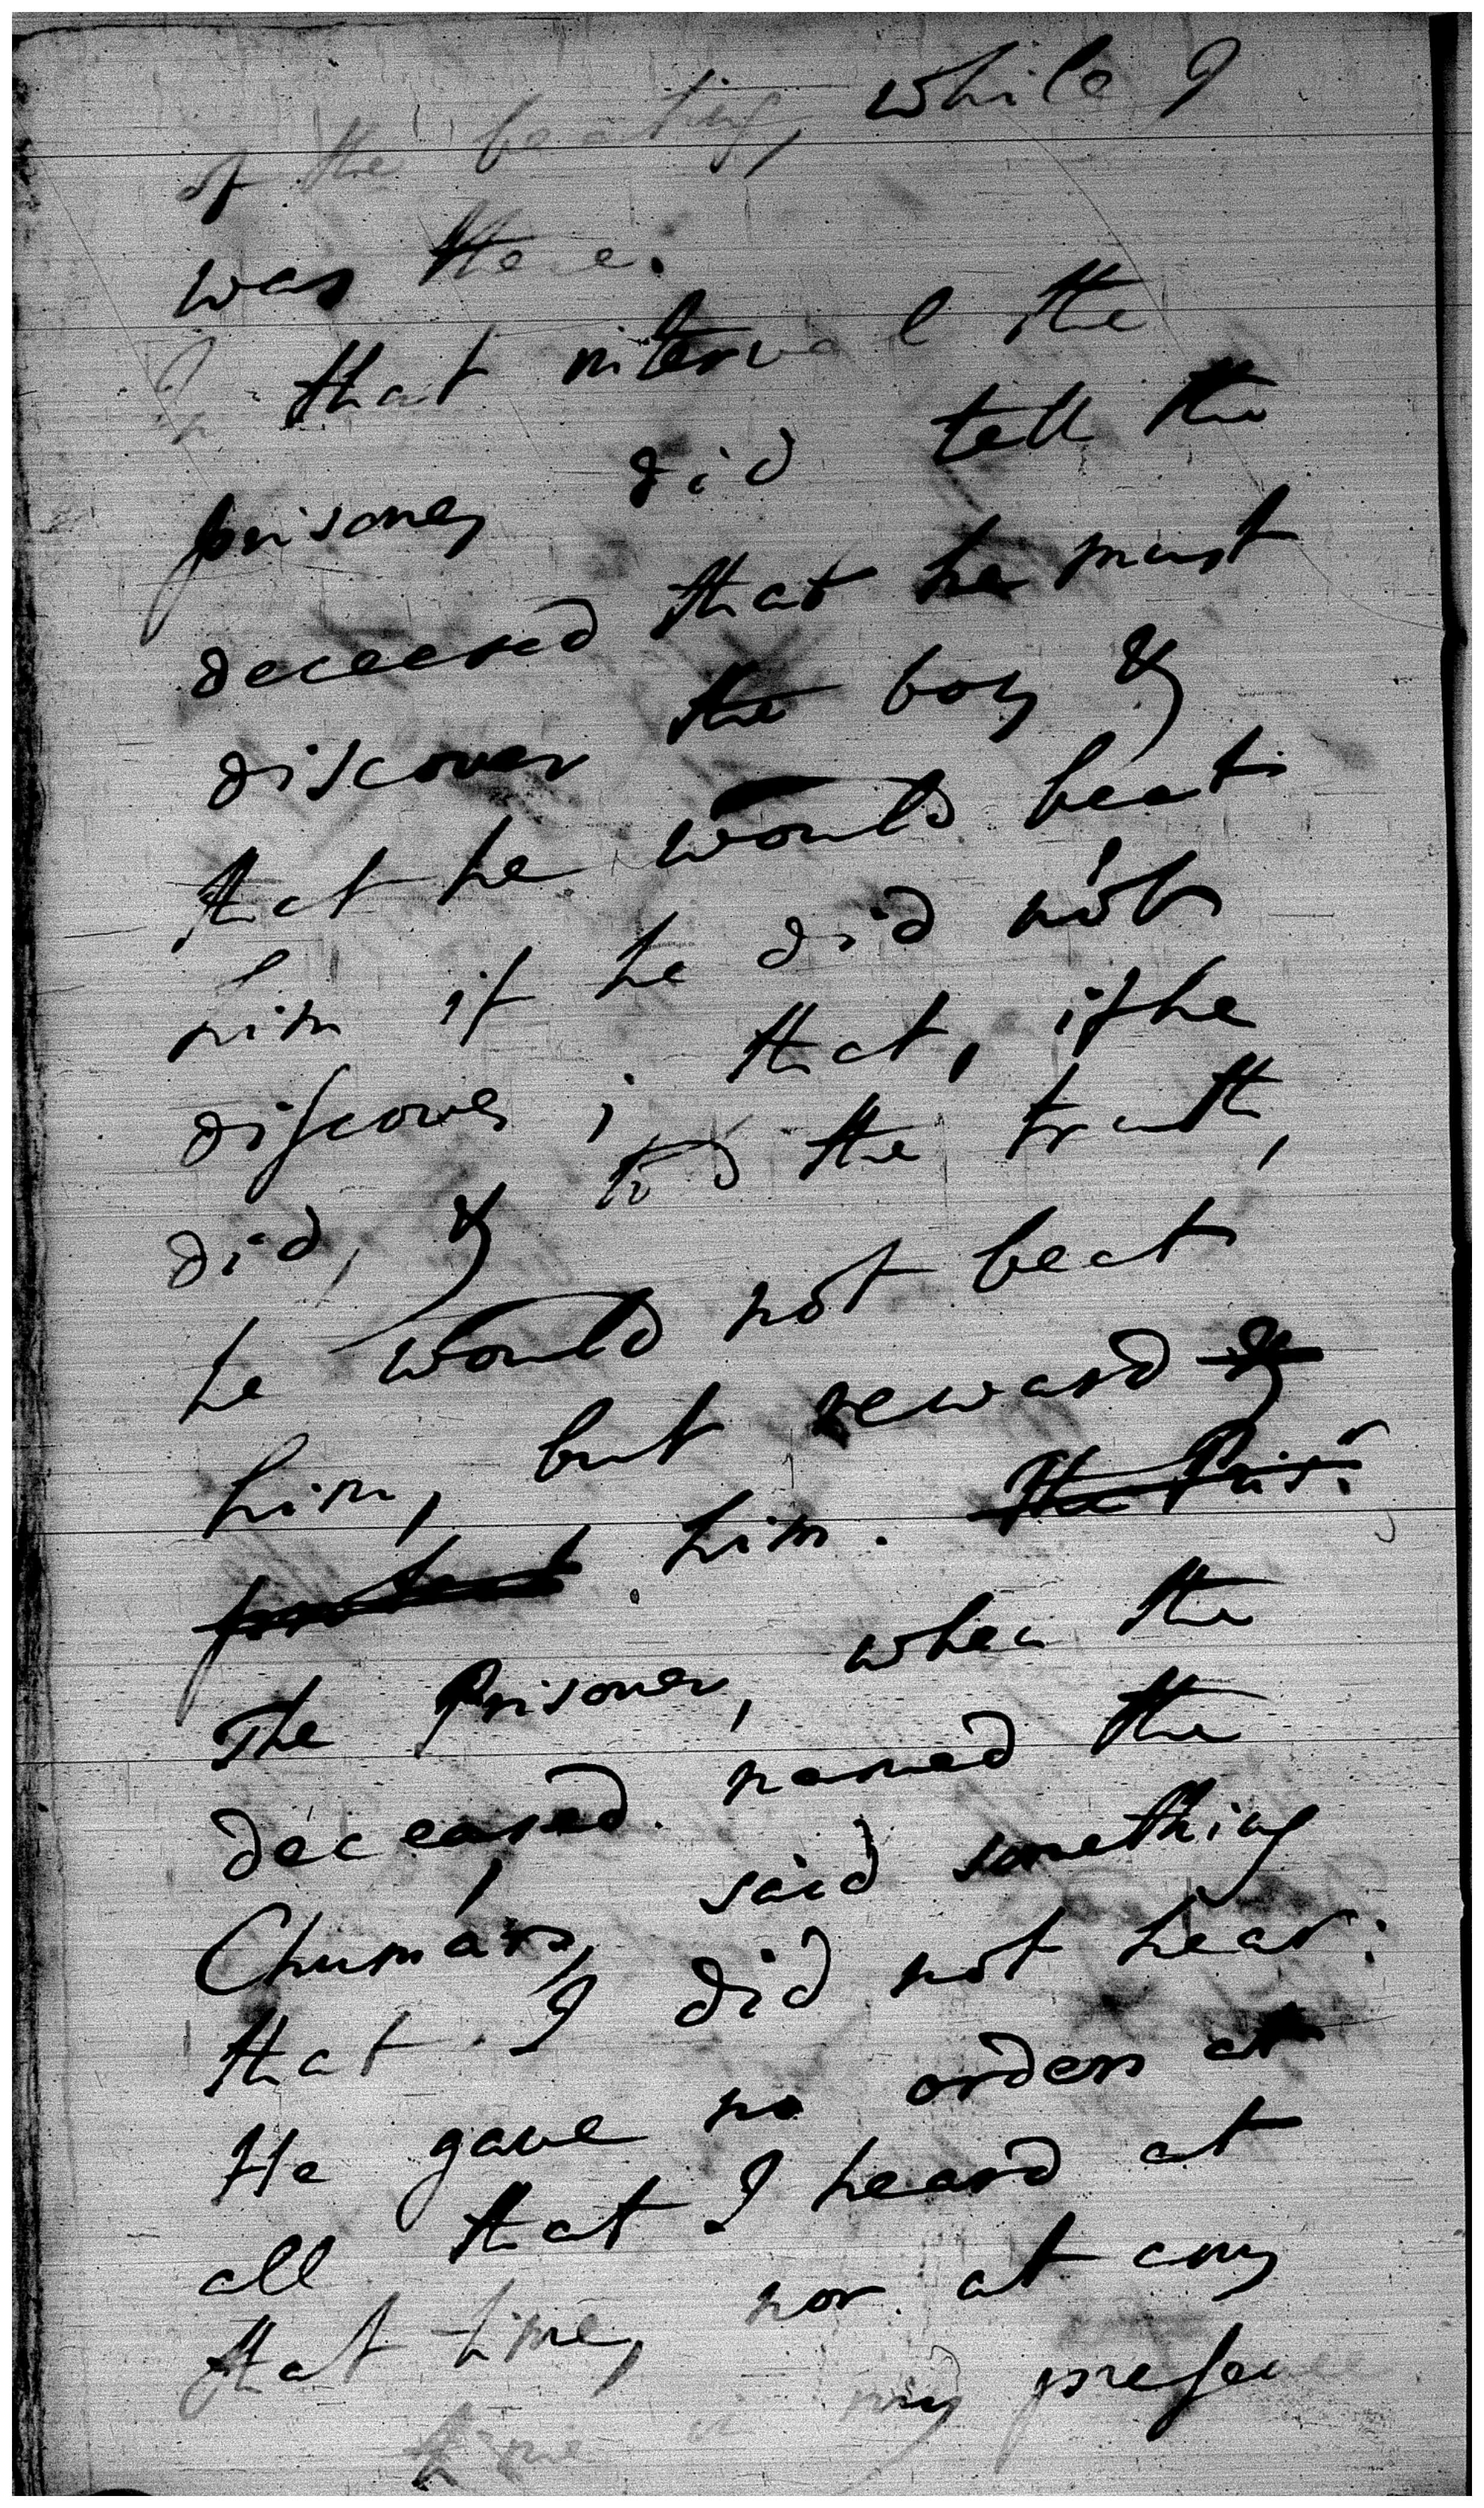 of the beating, while I
was there.
In that interval the
prisoner did tell the
deceased that he must
discover the boy &
that he would beat
him if he did not
discover; that, if he
did, & told the truth,
he would not beat
him, but reward &
protect him. The Pris.r
The Prisoner, when the
deceased named the
Chumárs, said something
that I did not hear:
He gave no orders at
all that I heard at
that time, nor at any
time in my presence